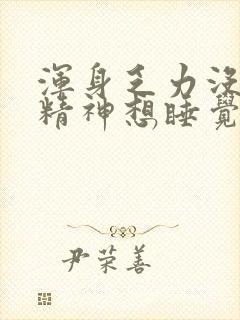 渾身乏力沒
精神想睡覺
尹荣善